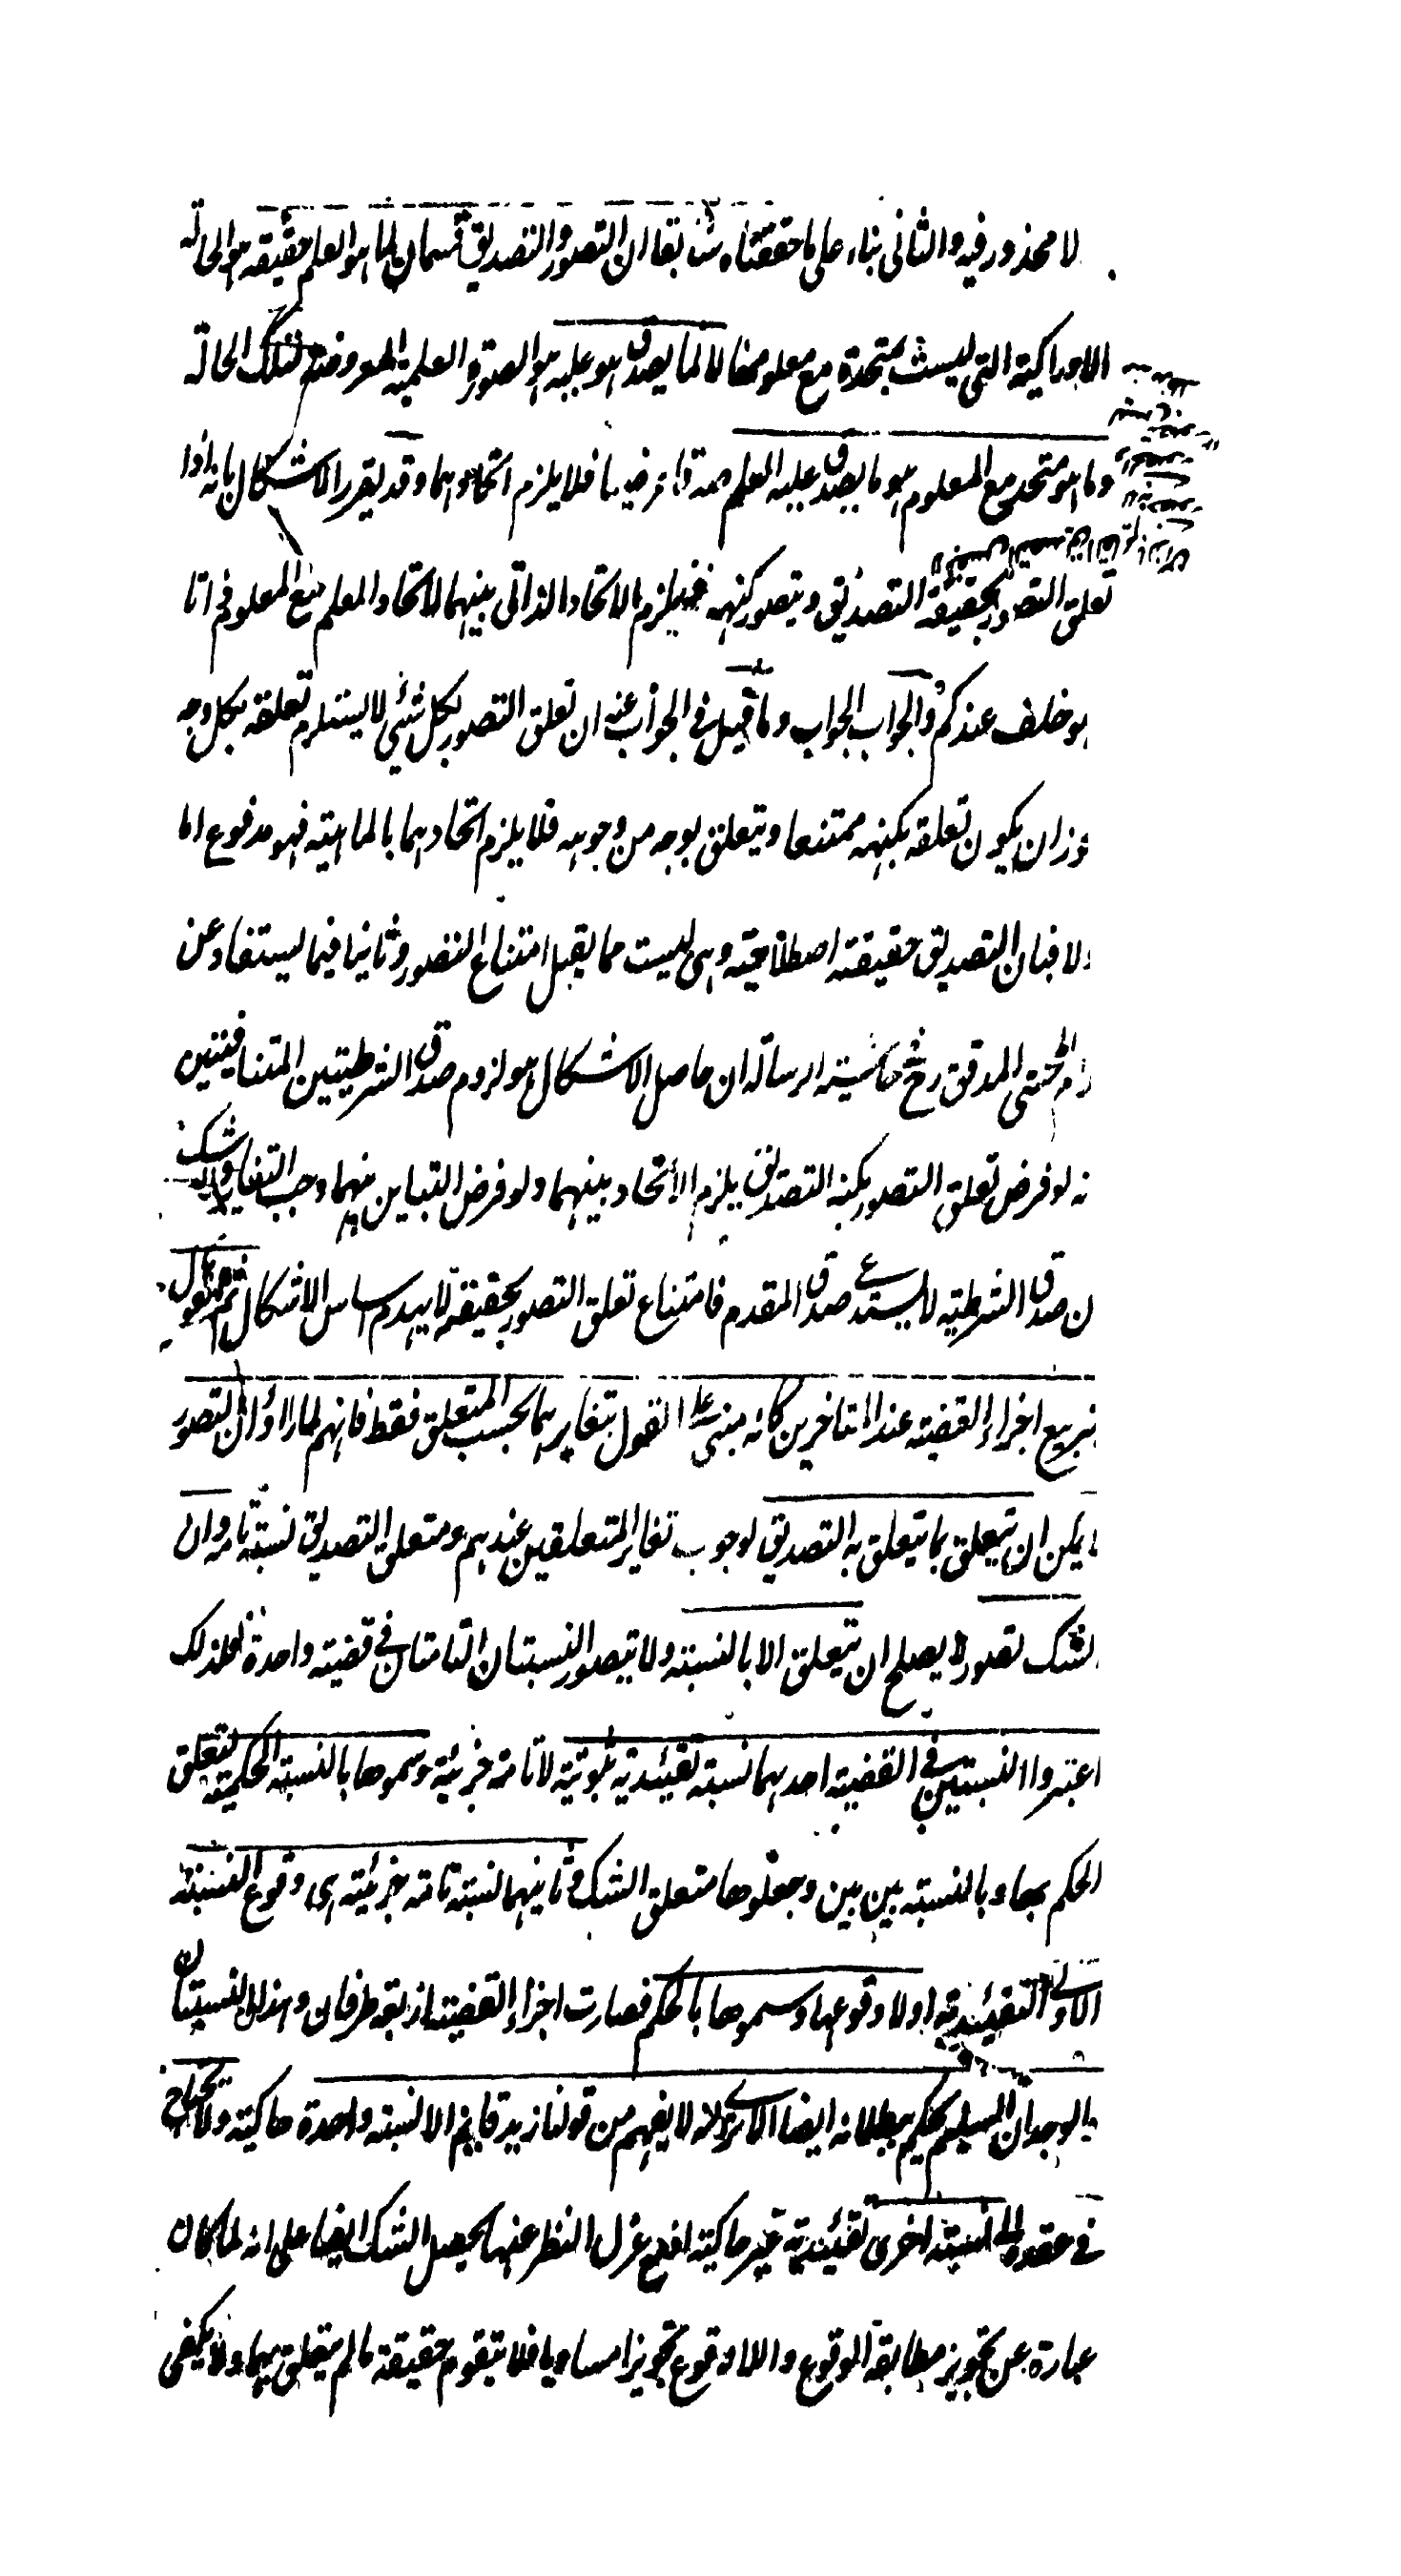 لا محذور فيه والثانى بناء على ما حققناه سابقا ان التصور والتصديق قسمان لما هو العلم حقيقة هو الحالة
الادراكية التى ليست بمتحدة مع معلومها لا لما يصدق هو عليه هو الصورة العلمية المعروضة لتلك الحالة
وما هو متحد مع المعلوم هو ما يصدق عليه العلم صدقا عرضيا فلا يلزم اتحادهما وقد يقرر الاشكال بانه اذا
تعلق التصور بحقيقة التصديق ويتصور كنهه فيلزم الاتحاد الذاتى بينهما لاتحاد العلم مع المعلوم
هو خلف عندكم والجواب الجواب وما قيل فى الجواب عنه ان تعلق التصور بكل شئى لا يستلزم تعلقه بكل وجه
ان يكون تعلقه بكنهه ممتنعا ويتعلق بوجه من وجوهه فلا يلزم اتحادهما بالماهية فهو مدفوع اما
ولا فبان التصديق حقيقته اصطلاحية وهى ليست مما يقبل امتناع التصور وثانيا فيما يستفاد عن
المحشى المدقق رح حاشية الرسالة ان حاصل الاشكال هو لزوم صدق الشرطيتين المتنافيتين
نه لو فرض تعلق التصور بكنه التصديق يلزم الاتحاد بينهما ولو فرض التباين بينهما وجب التغاير ولا شك
ن صدق الشرطية لا يستدعى صدق المقدم فامتناع تعلق التصور بحقيقة لا يهدم اساس الاشكال ثم القول
بتربيع اجزاء القضية عند المتاخرين كانه مبنى على القول بتغايرهما بحسب المتعلق فقط فانهم لما راوا ان التصور
لا يمكن ان يتعلق بما يتعلق به التصديق لوجوب تغاير المتعلقين عندهم ومتعلق التصديق نسبة تامة وان
الشك تصور لا يصلح ان يتعلق الا بالنسبة ولا يتصور النسبتان التامتان فى قضية واحدة فلذلك
اعتبروا النسبتين فى القضية احدهما نسبة تقييدية ثبوتية لا تامة خبرية وسموها بالنسبة الحكمية لتعلق
الحكم بها وبالنسبة بين بين وجعلوها متعلق الشك وثانيهما نسبة تامة خبرية اى وقوع النسبة
الاولى التقييدية او لا وقوعها وسموها بالحكم فصارت اجزاء القضية اربعة طرفان وهذان النسبتان
والوجدان السليم يحكم ببطلانه ايضا الا ترى انه لا يفهم من قولنا زيد قايم الا نسبة واحدة حاكية ولا يحتاج
فى عقده الى نسبة اخرى تقييدية غير حاكية اذ مع عزل النظر عنها يحصل الشك ايضا على انه لما كان
عبارة عن تجويز مطابقة الوقوع واللاوقوع تجويزا مساويا فلا يتقوم حقيقة ما لم يتعلق بهما ولا يكفى